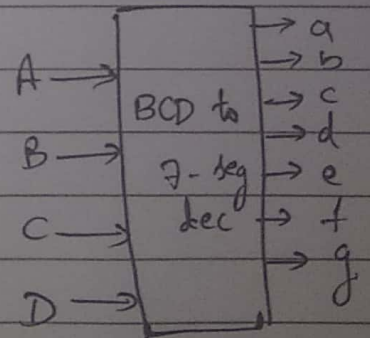 A
B
C
D
BCD to
7-seg
dec
a
b
c
d
e
f
g